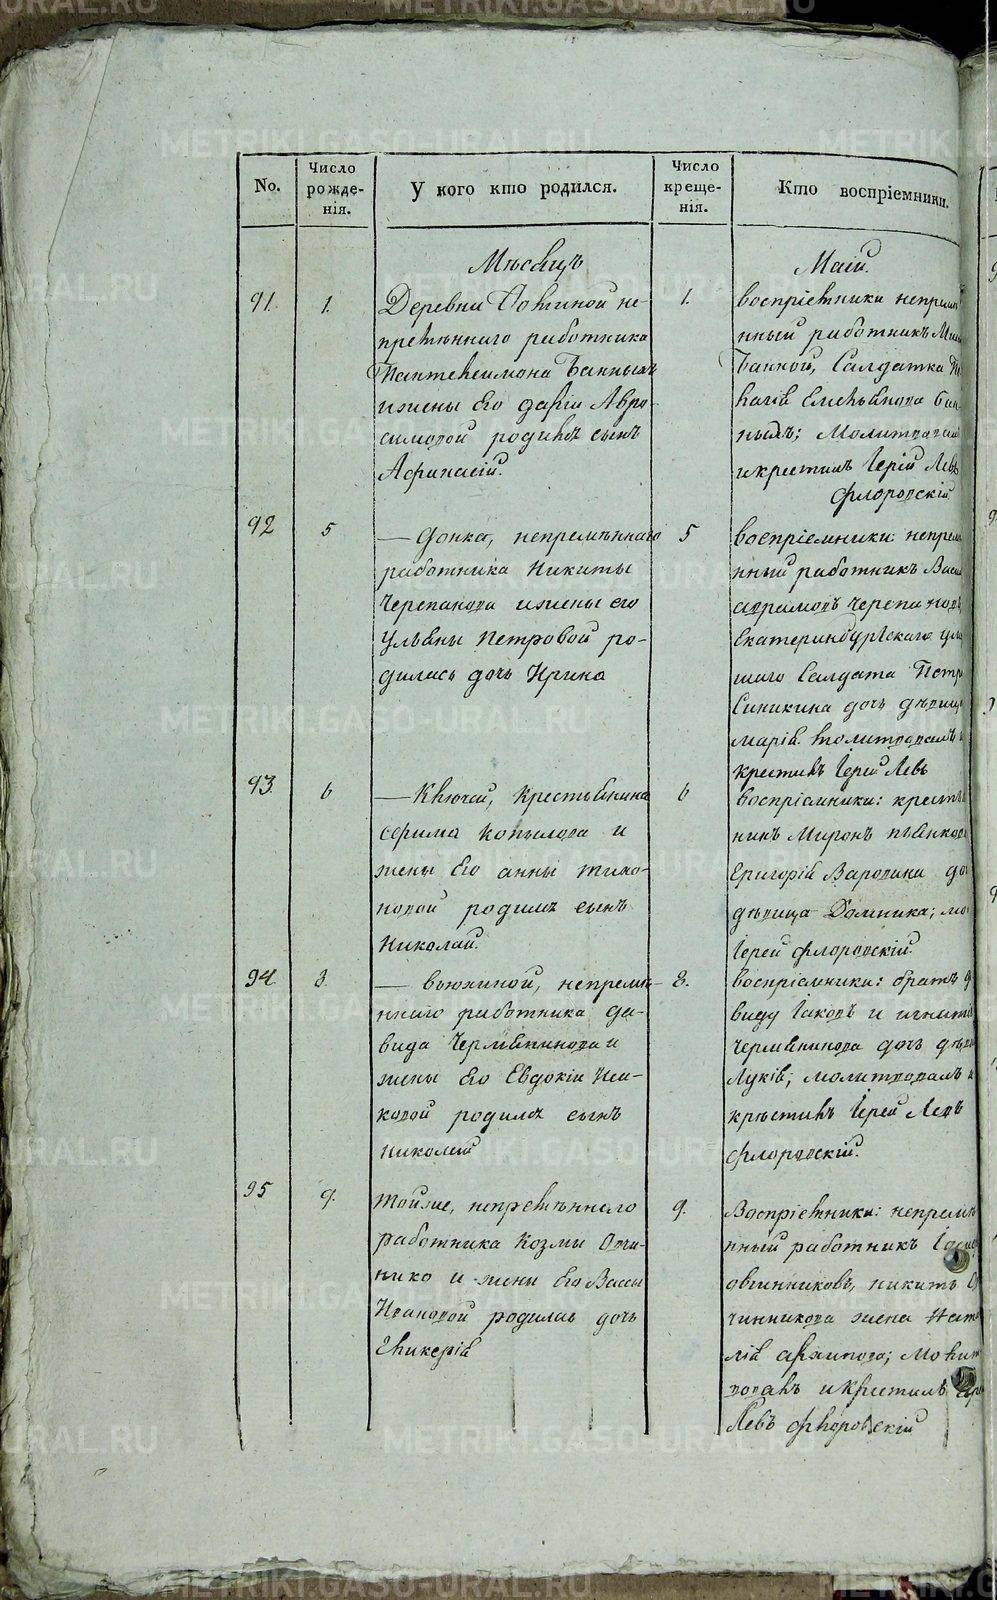 No.
Число рожде-нія.
У кого кто родился.
Число креще-нія.
Кто воспріемники.
Мѣсяцъ
Маій.
91.
1.
Деревни не-
премѣннаго работника
Пантелеимона Банныхъ
и жены его Дарьи Авро-
симовой родился сынъ
Афанасій.
1.
воспріемники непремѣ
нный работникъ
Банной, Салдатка
Емельянова Бан-
ныхъ; Молитвовалъ
и крестилъ Іерей Левъ
Флоровскій
92
5
— непремѣннаго
работника Никиты
Черепанова и жены его
Ульяны Петровой ро-
дилась дочь Ирина
5
воспріемники: непремѣ
нный работникъ Васи
Аврамовъ Черепановъ
Екатеринбургскаго
шаго Салдата Петр
Синикина дочь дѣвица
Марія. Молитвовалъ и
крестилъ Іерей Левъ
93.
6
— Ключей, Крестьянина
Ефима Копылова и
жены его Анны Тихо-
новой родился сынъ
Николай.
6
Воспріемники: кресть
нинъ Миронъ Пьянков
Григорія Варовина до
дѣвица Домника; мо
Іерей Флоровскій.
94
8.
— Вьюхиной, непремѣ-
ннаго работника Да-
вида Чермянинова и
жены его Евдокіи Иса-
ковой родился сынъ
Николай
8.
воспріемники: братъ Да
виду Іаковъ и Игнатія
Чермянинова дочь дѣви
Лукія; молитвовалъ и
крестилъ Іерей Левъ
Флоровскій.
95
9.
Той же, непремѣннаго
работника Козмы Овчи-
нико и жены его Вассы
Ивановой родилась дочь
Гликерія
9.
Воспріемники: непремѣ
нный работникъ
Овчинниковъ, Никиты Ов
чинникова жена Ната
лія Архипова; Молит
вовалъ и Крестилъ Іере
Левъ Флоровскій
METRIKI.GASO-URAL.RU